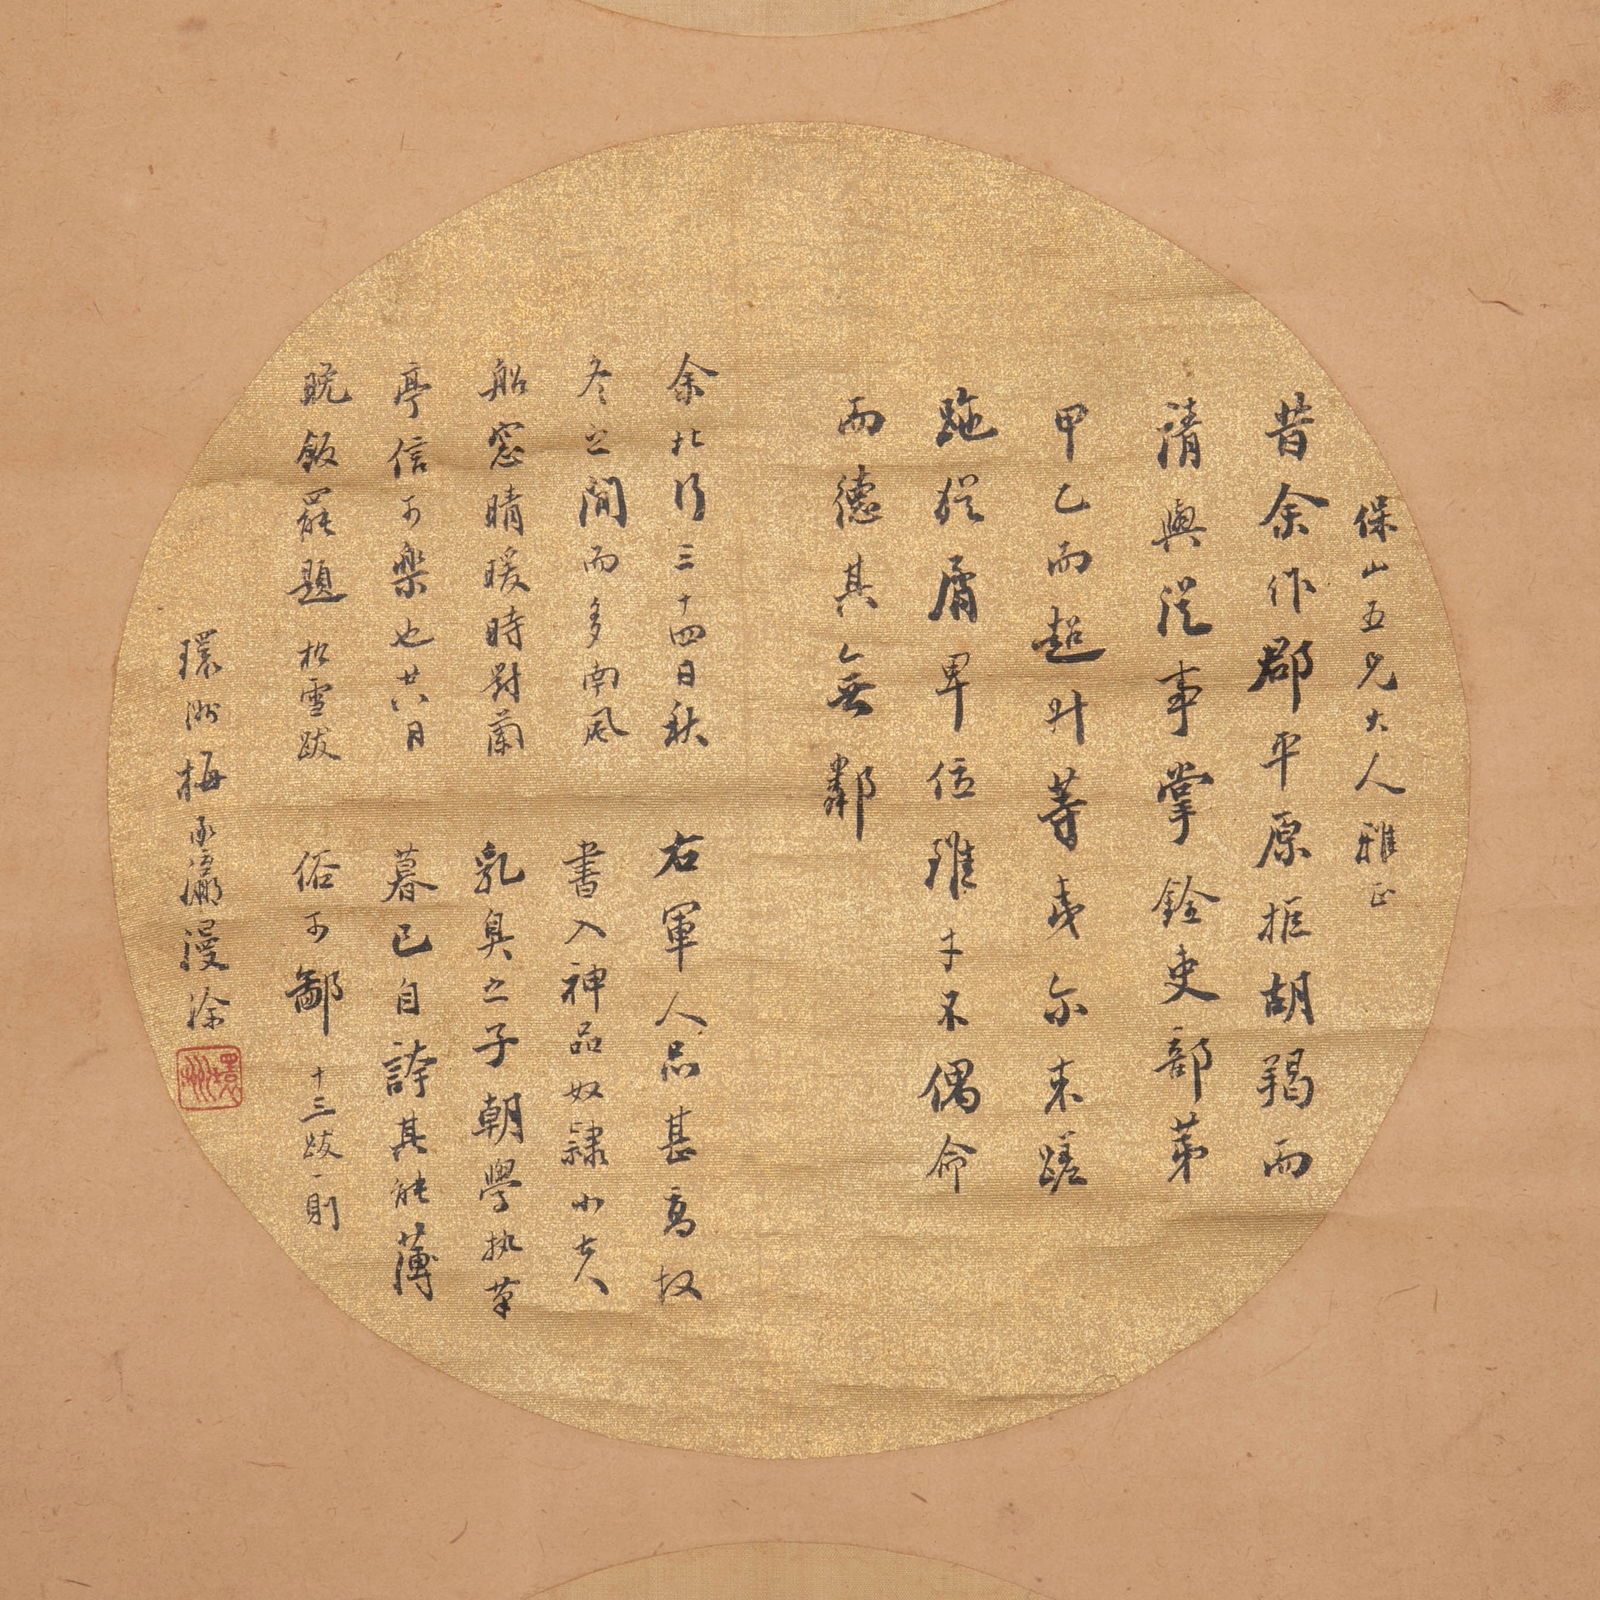 保山五兄大人雅正
昔余作郡平原拒胡羯而
清與從事掌銓吏部第
甲乙而超升等夷尔来蹉
跎猶屑卑位雖才不偶命
而德其無鄰
余北行三十四日秋
冬之間而多南風
船窓晴暖時對蘭
亭信可樂也廿八月
晩飯罷題 松雪跋
右軍人品甚高故
書入神品奴隷小夫
乳臭之子朝學执筆
暮已自誇其能薄
俗可鄙 十三跋一則
環洲梅承瀛漫涂
環洲